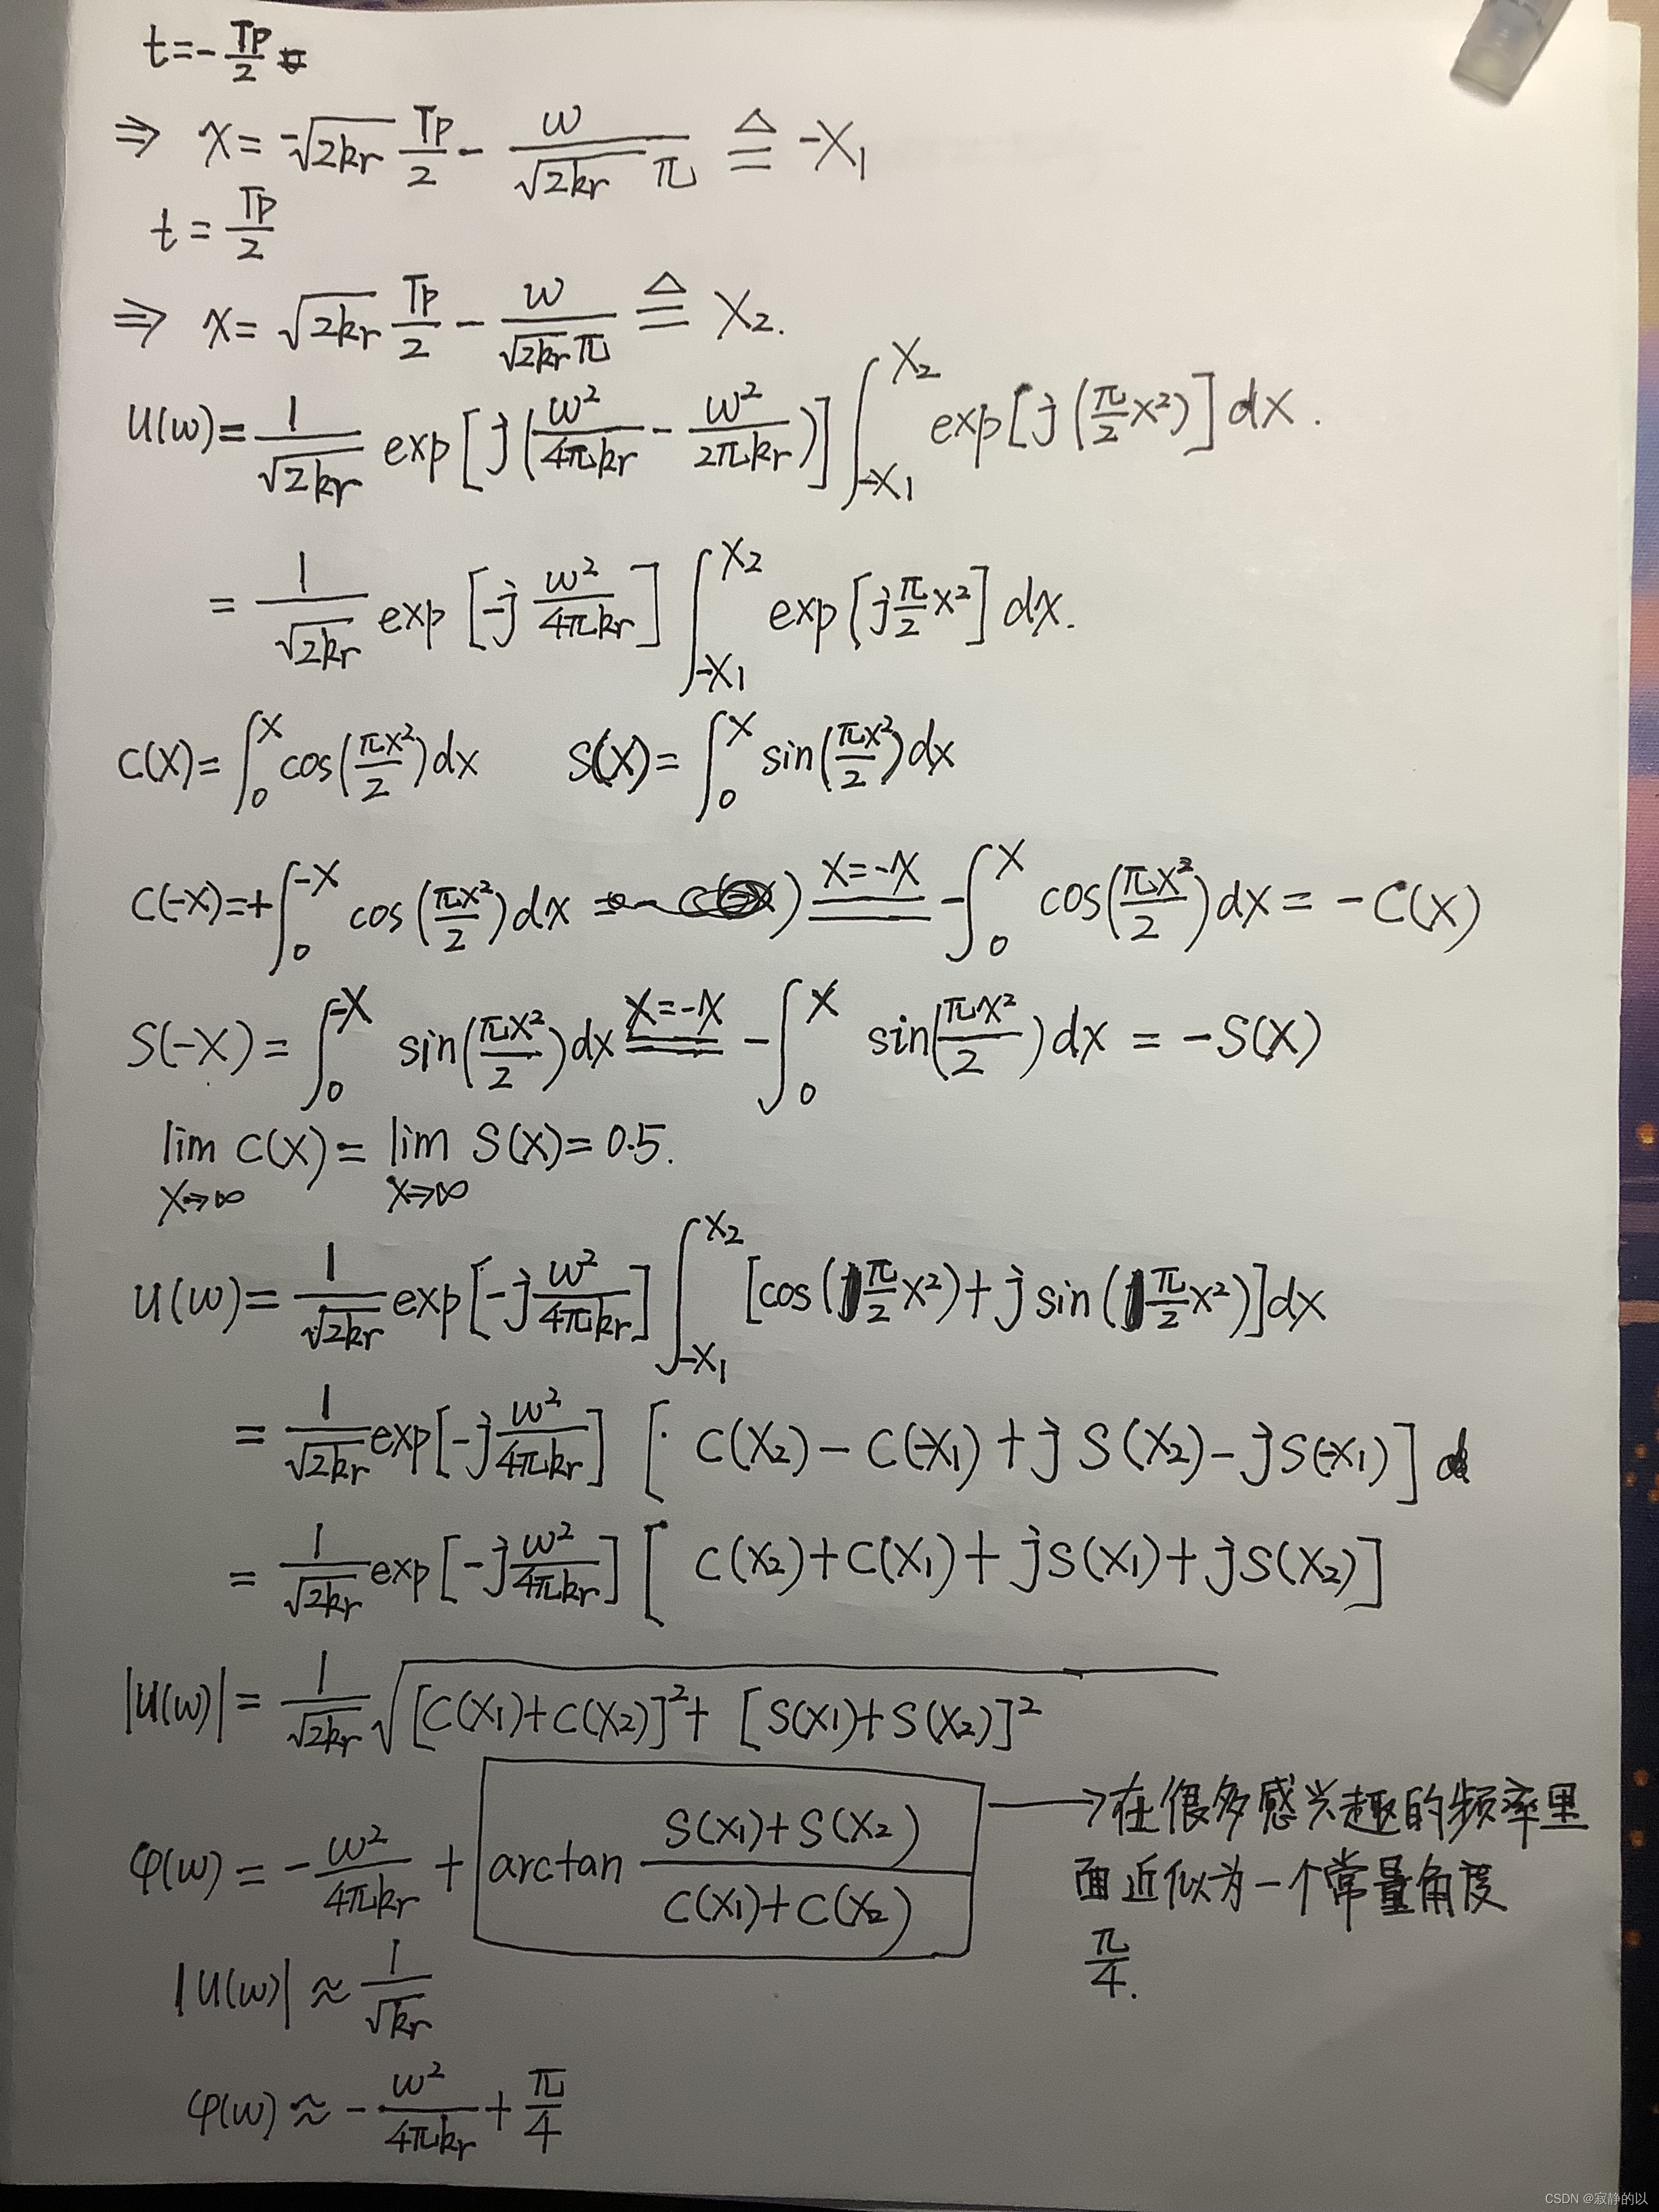 t=-Tp/2
⇒ x= -√(2kr) Tp/2 - ω/(√(2kr) π) ≜ -X₁
t = Tp/2
⇒ x= √(2kr) Tp/2 - ω/(√(2kr) π) ≜ X₂.
U(ω)= 1/√(2kr) exp[j(ω²/(4πkr) - ω²/(2πkr))] ∫_{-X₁}^{X₂} exp[j(π/2 x²)] dx.
= 1/√(2kr) exp[-j ω²/(4πkr)] ∫_{-X₁}^{X₂} exp[j π/2 x²] dx.
C(X)= ∫_0^X cos(πx²/2)dx S(X)= ∫_0^X sin(πx²/2)dx
C(-X)=+∫_0^{-X} cos(πx²/2)dx =(x=-x)= -∫_0^X cos(πx²/2)dx = -C(X)
S(-X) = ∫_0^{-X} sin(πx²/2)dx =(x=-x)= -∫_0^X sin(πx²/2)dx = -S(X)
lim_{X→∞} C(X)= lim_{X→∞} S(X)= 0.5.
U(ω)= 1/√(2kr) exp[-j ω²/(4πkr)] ∫_{-X₁}^{X₂} [cos(π/2 x²)+j sin(π/2 x²)]dx
= 1/√(2kr) exp[-j ω²/(4πkr)] [C(X₂)-C(-X₁)+jS(X₂)-jS(-X₁)]
= 1/√(2kr) exp[-j ω²/(4πkr)] [C(X₂)+C(X₁)+jS(X₁)+jS(X₂)]
|U(ω)|= 1/√(2kr) √([C(X₁)+C(X₂)]²+[S(X₁)+S(X₂)]²)
φ(ω) = -ω²/(4πkr) + arctan (S(X₁)+S(X₂))/(C(X₁)+C(X₂)) → 在很多感兴趣的频率里
面近似为一个常量角度
π/4.
|U(ω)| ≈ 1/√kr
φ(ω) ≈ -ω²/(4πkr) + π/4
CSDN @寂静的以